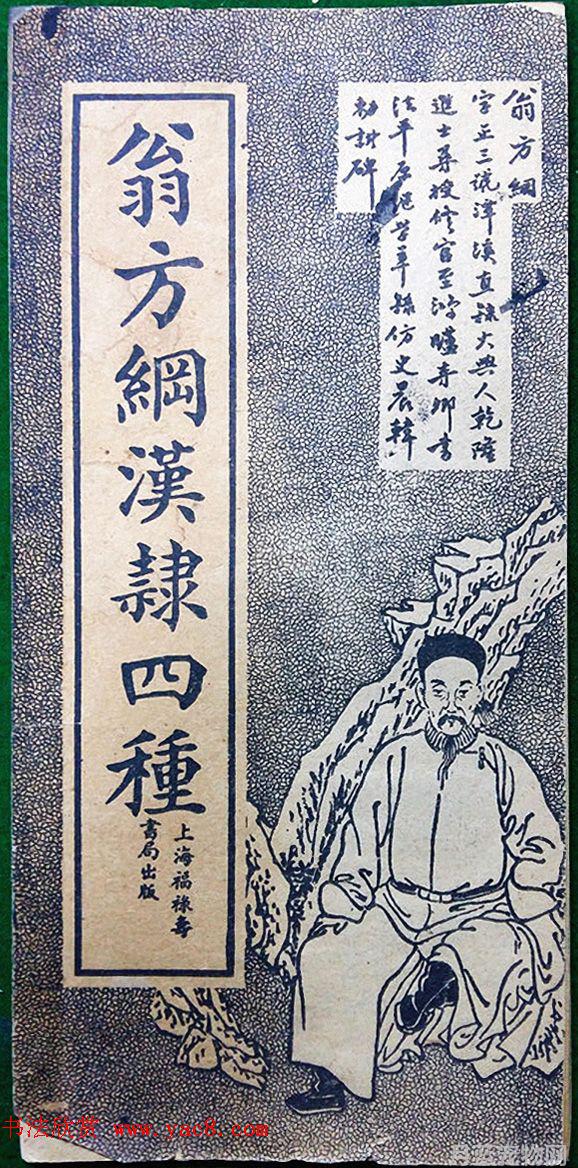 翁方綱
字正三號潭溪直隸大興人乾隆
進士尋授修官至鴻臚寺卿書
法平原繼學率隸仿史晨韓
勑封碑
翁方綱漢隷四種
上海福祿壽
書局出版
书法欣赏 www.yac8.com